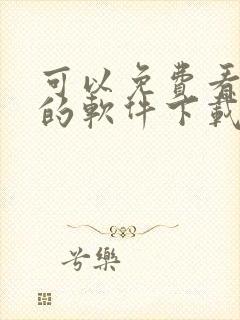 可以免费看
的软件下载
兮樂